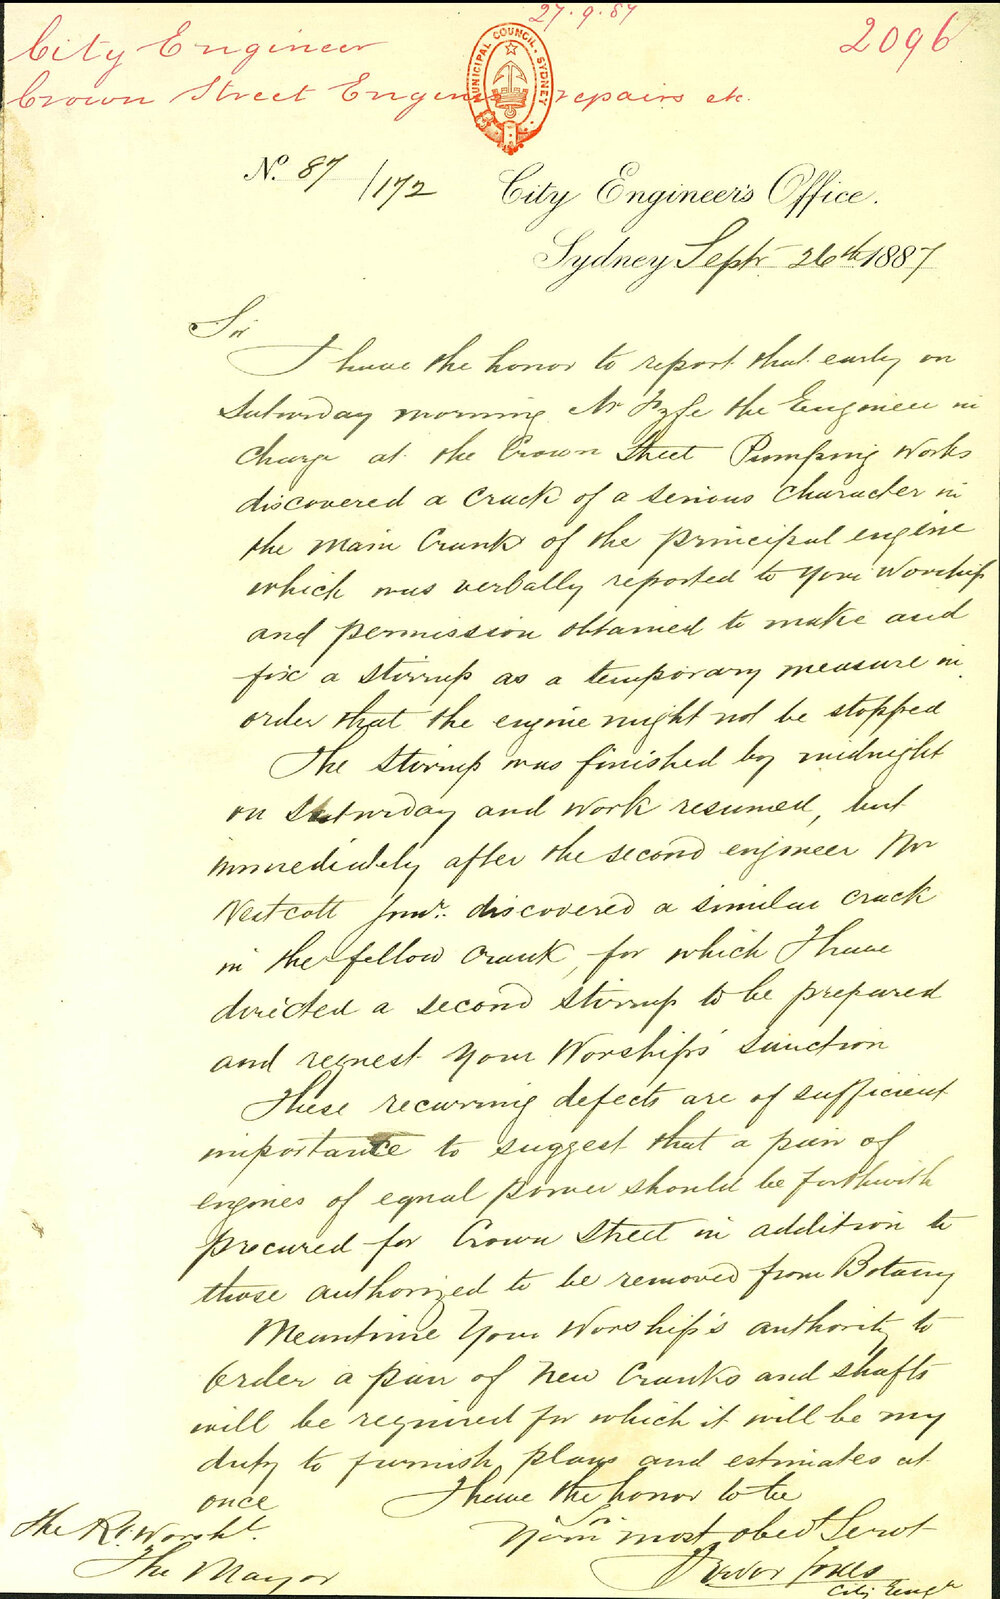 27.9.87
City Engineer
2096
Crown Street Engine repairs etc.
MUNICIPAL COUNCIL. SYDNEY
No. 87/172
City Engineer's Office.
Sydney Septr 26th 1887
Sir
I have the honor to report that early on
Saturday morning Mr Fyfe the Engineer in
charge at the Crown Street Pumping Works
discovered a crack of a serious character in
the main Crank of the principal engine
which was verbally reported to Your Worship
and permission obtained to make and
fix a stirrup as a temporary measure in
order that the engine might not be stopped
The stirrup was finished by midnight
on Saturday and work resumed, but
immediately after the second engineer Mr
Westcott Junr. discovered a similar crack
in the fellow crank, for which I have
directed a second stirrup to be prepared
and request Your Worship's sanction
These recurring defects are of sufficient
importance to suggest that a pair of
engines of equal power should be forthwith
procured for Crown Street in addition to
those authorized to be removed from Botany
Meantime Your Worship's authority to
order a pair of new Cranks and shafts
will be required for which it will be my
duty to furnish plans and estimates at
once
I have the honor to be
Sir
Your most obedt Servt
Trevor Jones
City Engr
The Rt. Worshl.
The Mayor